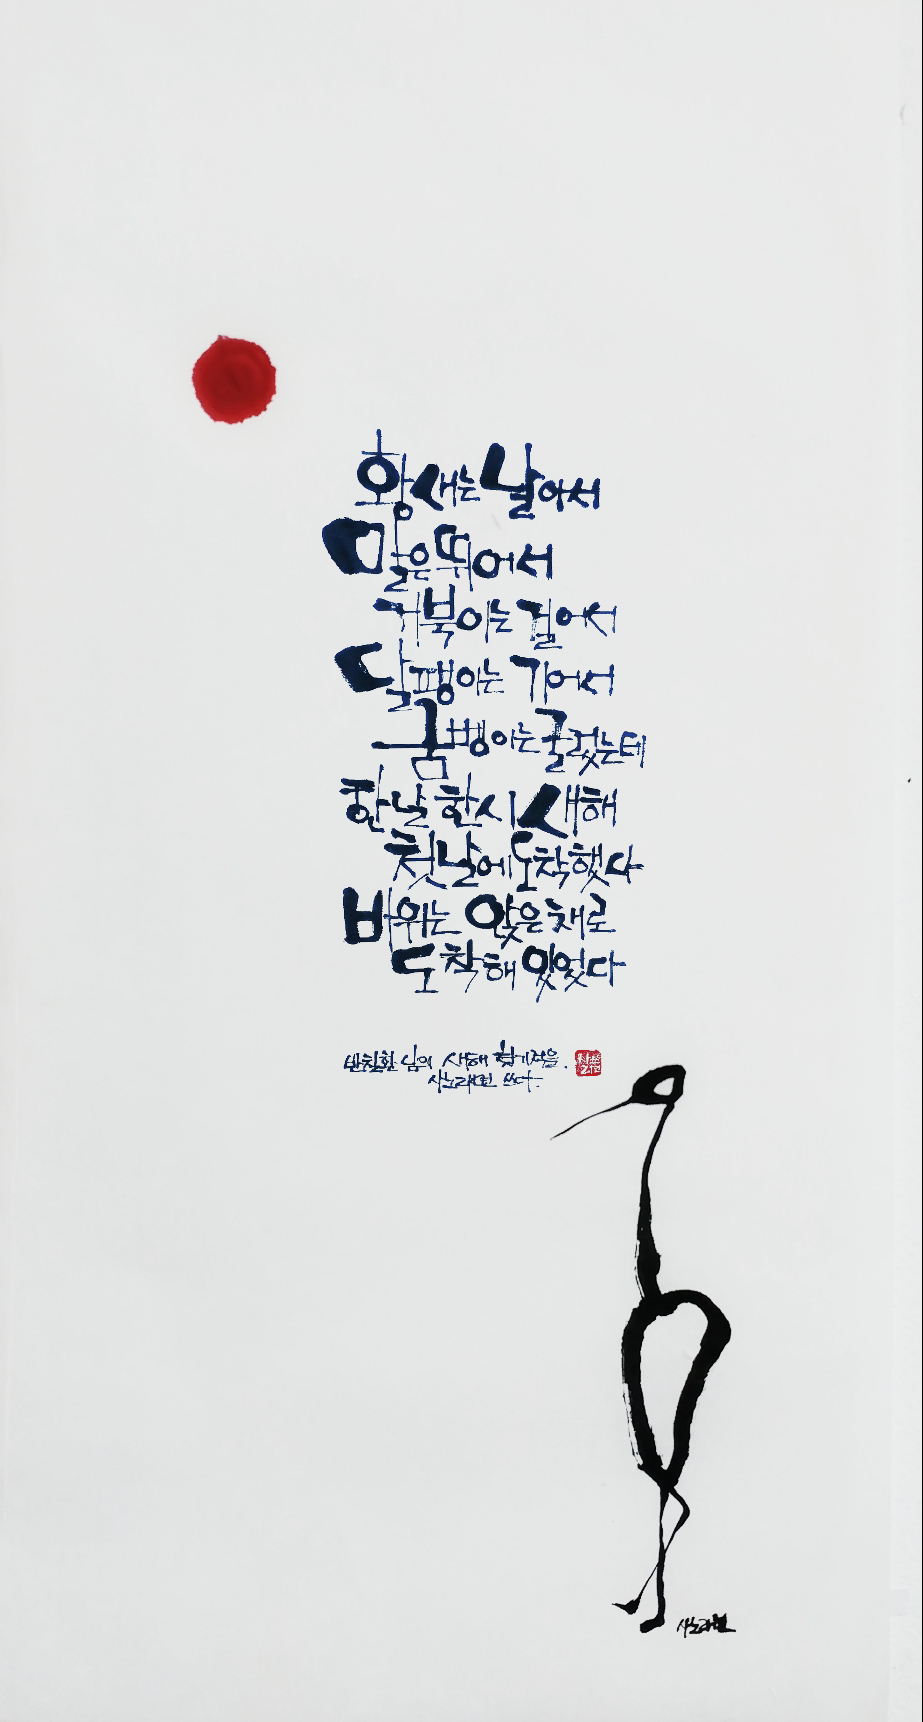 황새는 날아서
말은 뛰어서
거북이는 걸어서
달팽이는 기어서
굼벵이는 굴렀는데
한날 한시 새해
첫날에 도착했다
바위는 앉은 채로
도착해 있었다
반칠환 님의 새해 첫 기적을.
시노래 쓰다.